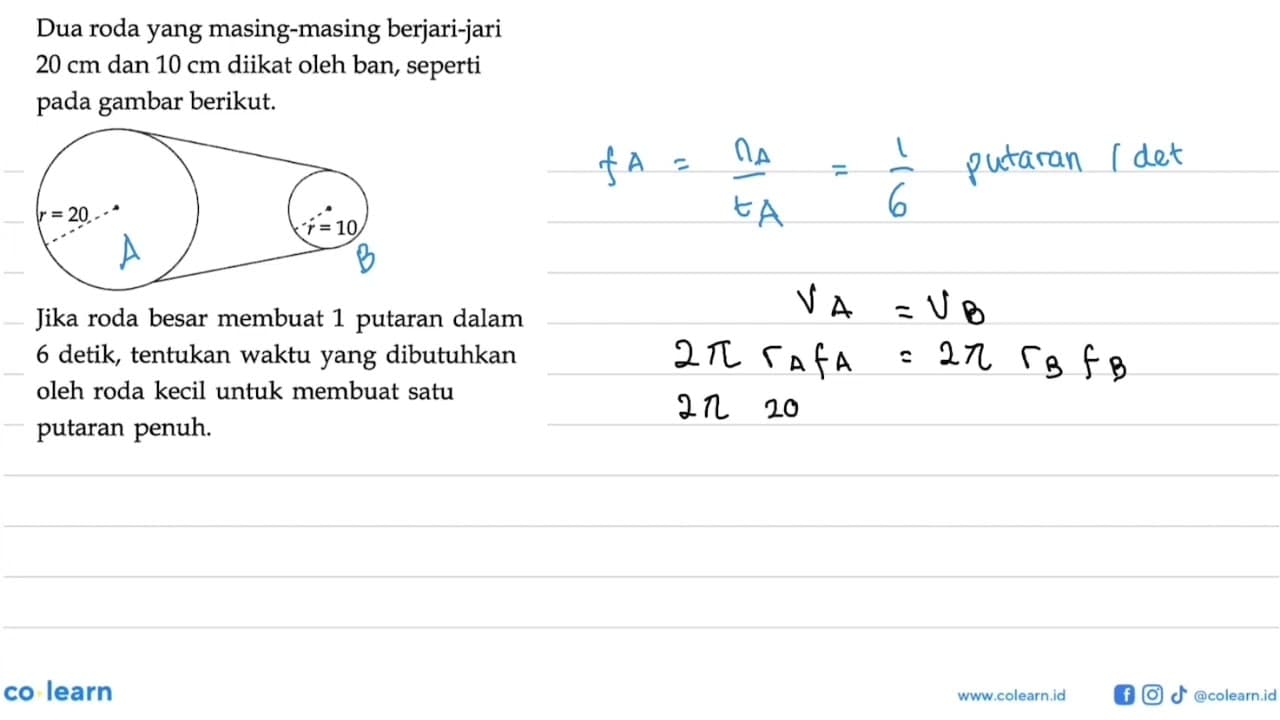 Dua roda yang masing-masing berjari-jari
20 cm dan 10 cm diikat oleh ban, seperti
pada gambar berikut.
r = 20
r = 10
A
B
Jika roda besar membuat 1 putaran dalam
6 detik, tentukan waktu yang dibutuhkan
oleh roda kecil untuk membuat satu
putaran penuh.
fA = nA/tA = 1/6 putaran / det
VA = VB
2π rA fA = 2π rB fB
2π 20
co learn
www.colearn.id
@colearn.id